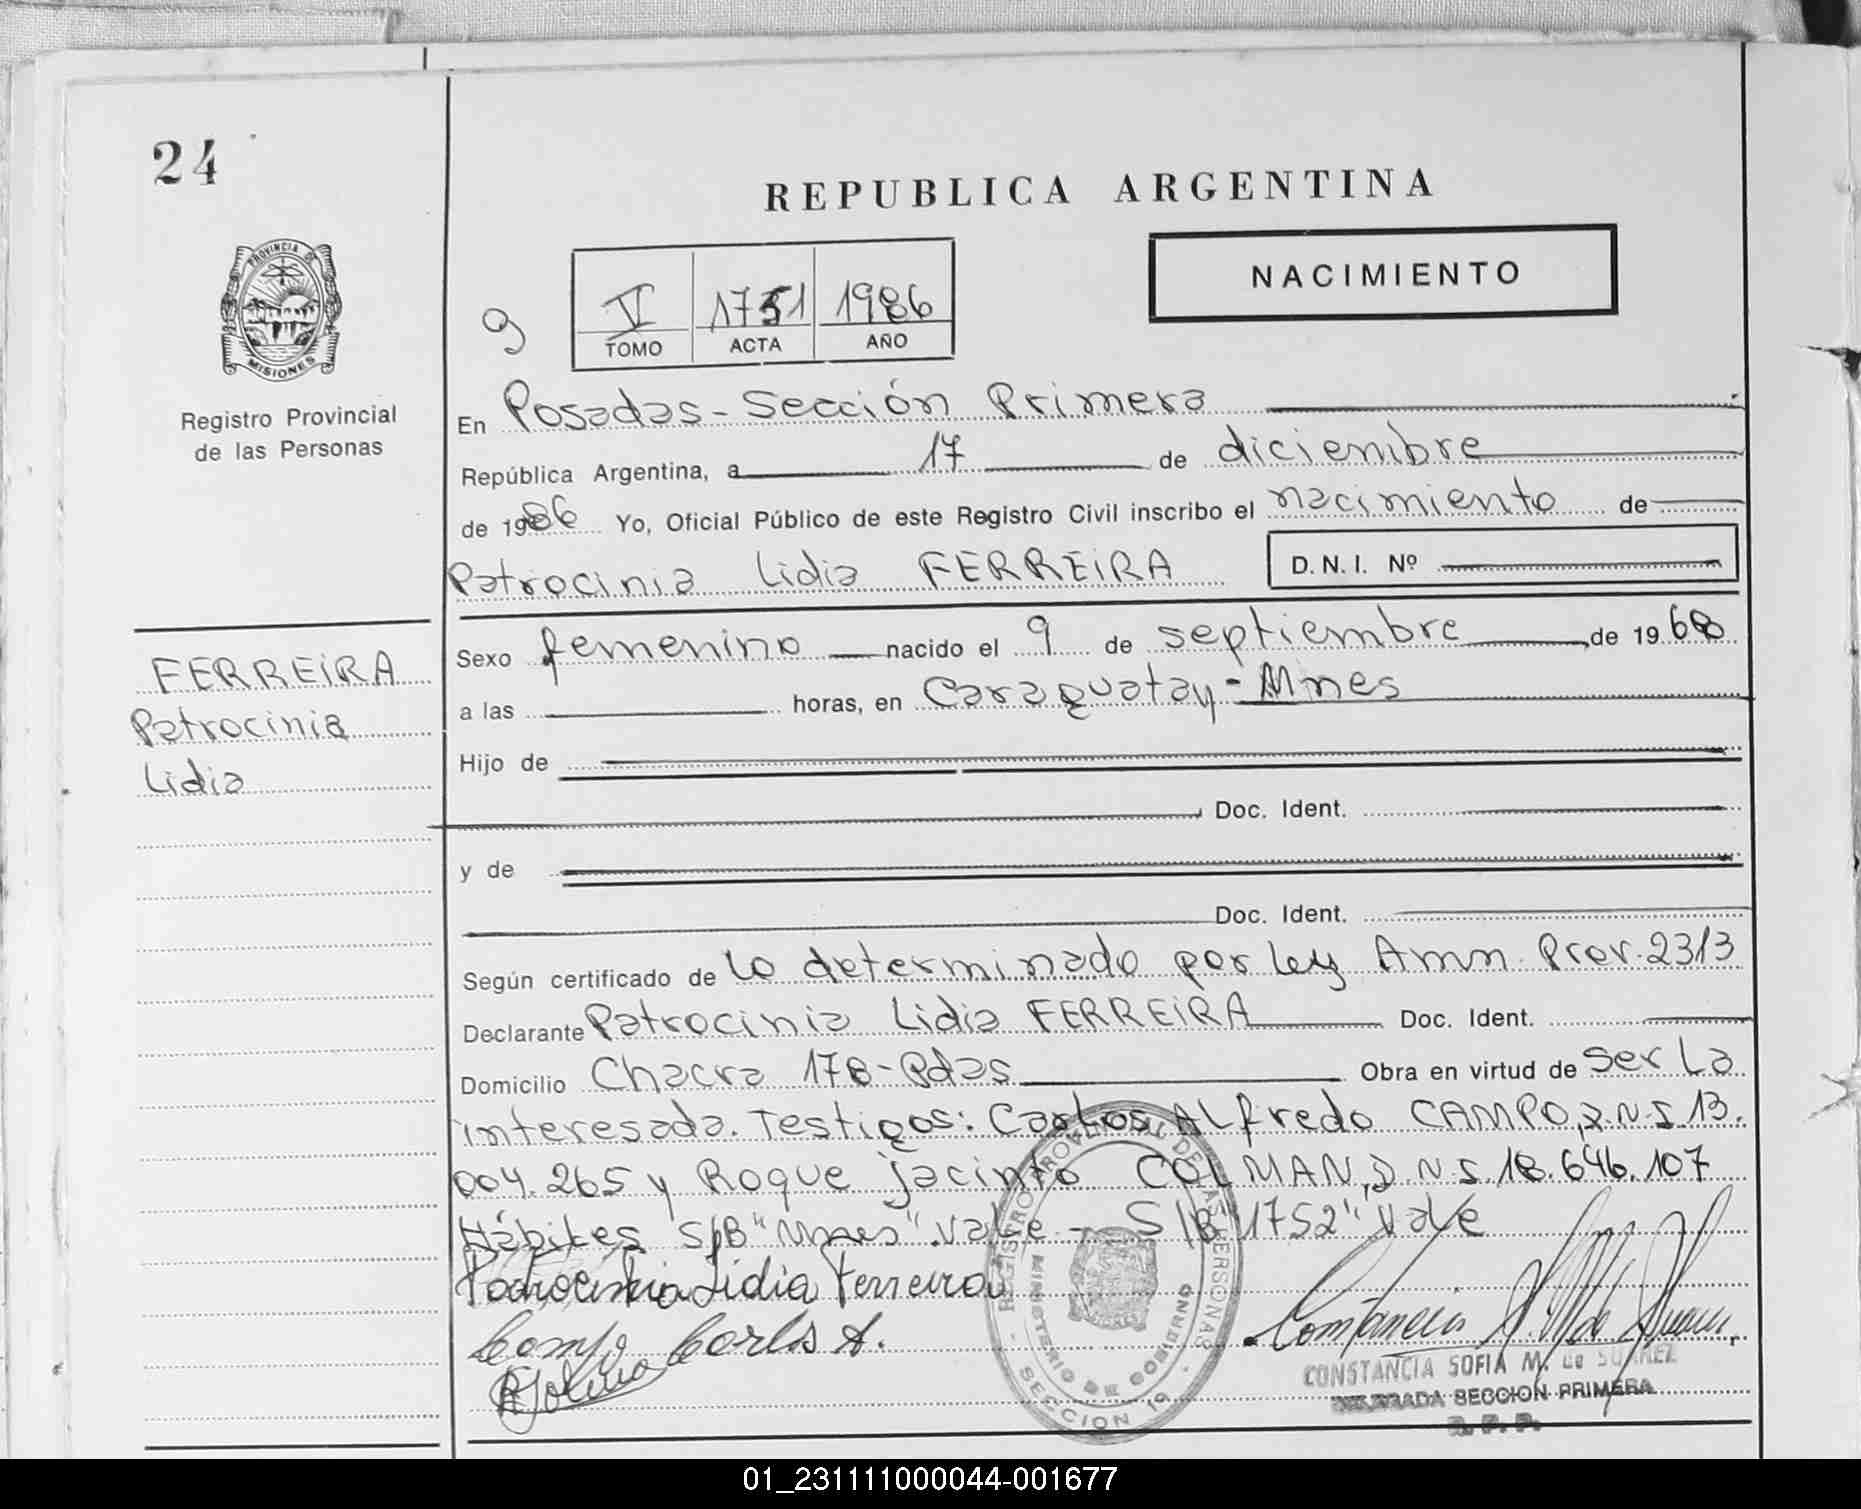 24
REPUBLICA ARGENTINA
PROVINCIA DE
MISIONES
Registro Provincial
de las Personas
9
V 1751 1986
TOMO ACTA AÑO
NACIMIENTO
En Posadas - Sección Primera
República Argentina, a 17 de diciembre
de 1986 Yo, Oficial Público de este Registro Civil inscribo el nacimiento de
Patrocinia Lidia FERREIRA D.N.I. Nº
Sexo femenino nacido el 9 de septiembre de 1968
a las horas, en Caraguatay - Mnes
Hijo de
Doc. Ident.
y de
Doc. Ident.
FERREIRA
Patrocinia
Lidia
Según certificado de lo determinado por ley Amn. Prov. 2313
Declarante Patrocinia Lidia FERREIRA Doc. Ident.
Domicilio Chacra 178 - Pdas Obra en virtud de ser la
interesada. Testigos: Carlos Alfredo CAMPO, D.N.I 13.
004.265 y Roque Jacinto COLMAN, D.N.I. 18.646.107
Hábiles S/B "Mnes" Vale - S/B "1752" Vale
Patrocinia Lidia Ferreira
Campo Carlos A.
REGISTRO PROVINCIAL DE LAS PERSONAS
MINISTERIO DE GOBIERNO
SECCION 1ª
CONSTANCIA SOFIA M. de SUAREZ
DELEGADA SECCION PRIMERA
R. P. P.
01_231111000044-001677